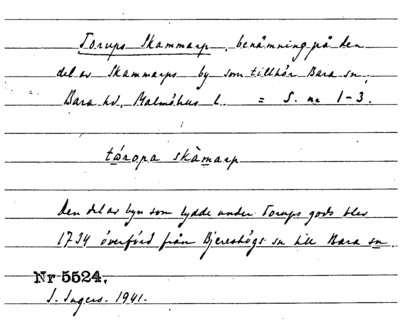 Torups Skammarp, benämning på den
del av Skammarps by som tillhör Bara sn,
Bara hd, Malmöhus l. = S. nr 1-3.
tóropa skàmarp
Den del av byn som lydde under Torups gods blev
1734 överförd från Bjereshögs sn till Bara sn.
Nr 5524.
I. Ingers. 1941.